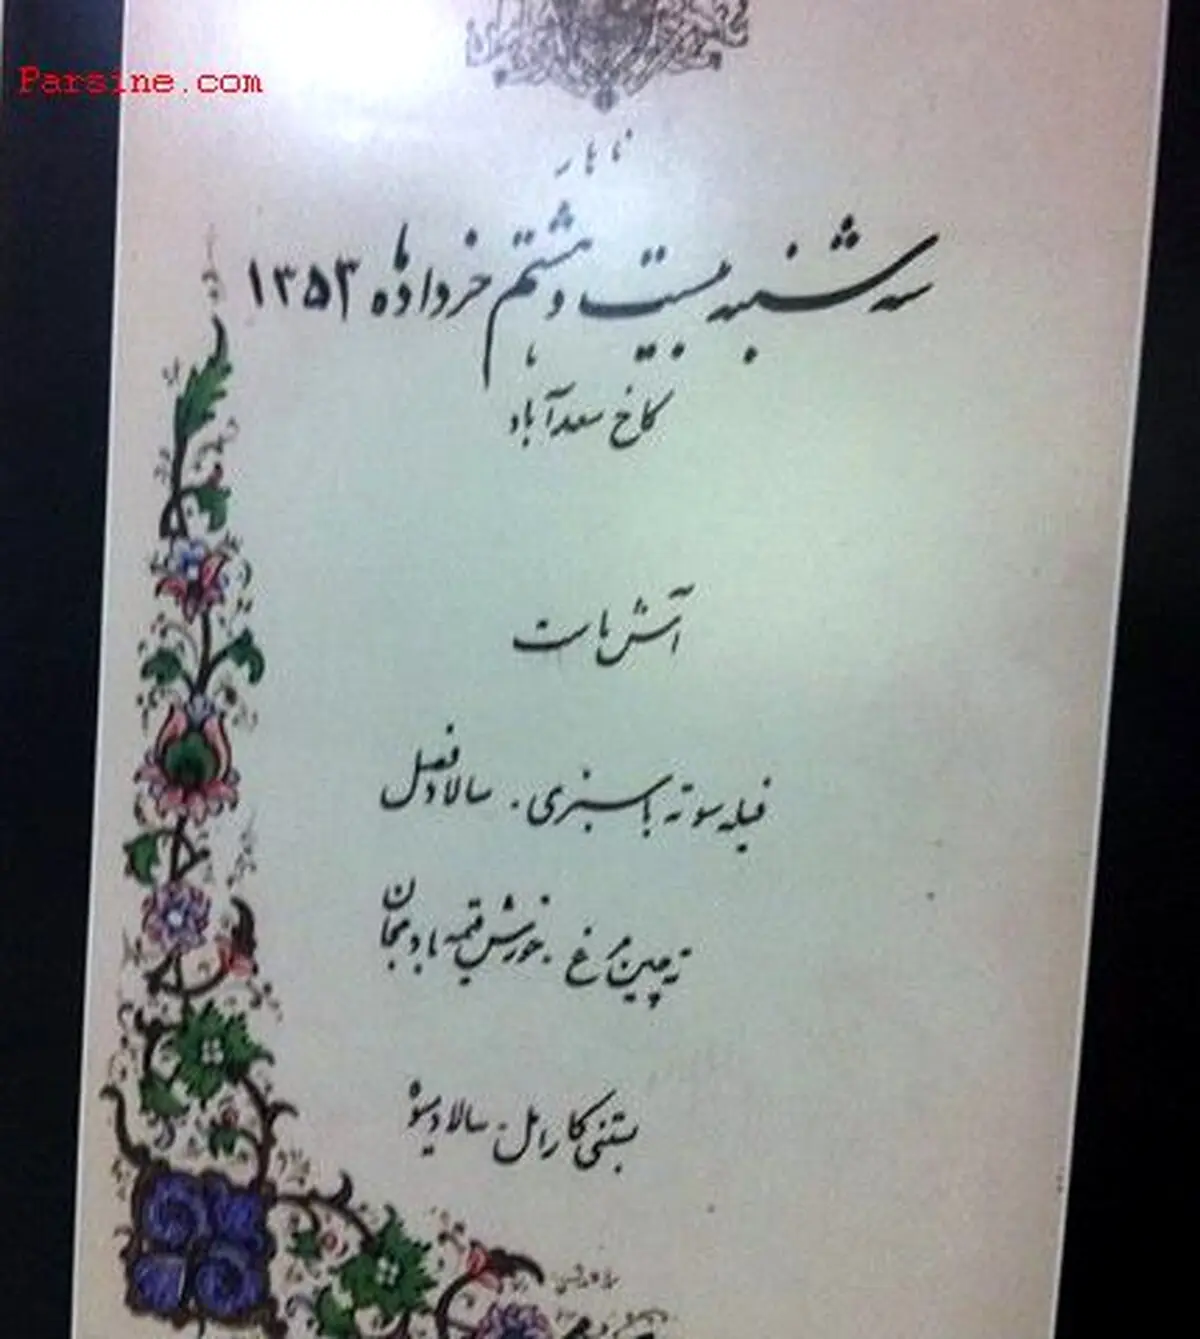 Parsine.com
ناهار
سه شنبه بیست و هشتم خرداد ماه ۱۳۵۳
کاخ سعدآباد
آش ماست
فیله سوته با سبزی . سالاد فصل
ته چین مرغ . خورش قیمه بادمجان
بستنی کارامل . سالاد میوه